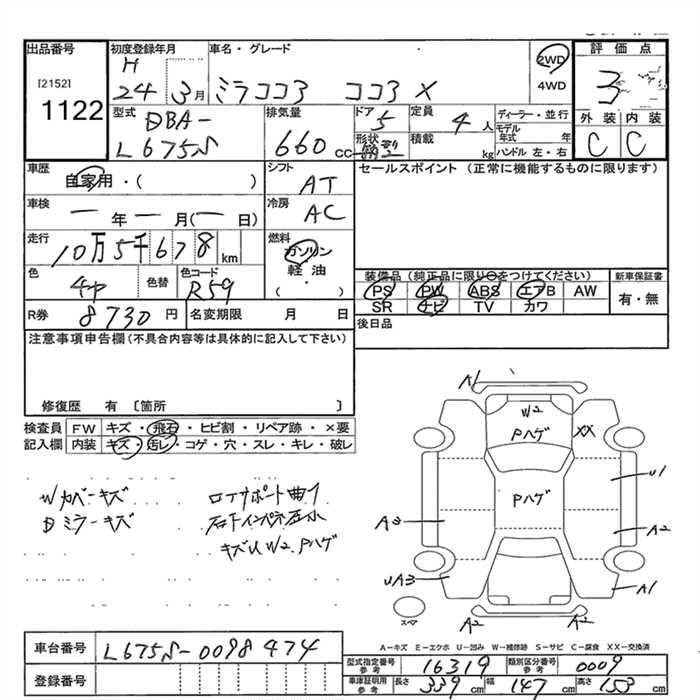 出品番号
[2152]
1122
初度登録年月
H 24 3月
車名・グレード
ミラココア ココア X
2WD
4WD
評価点
3
型式
DBA-
L675S
排気量
660 CC
ドア
5
形状
定員
4人
積載
kg
ディーラー・並行
モデル年式 年
ハンドル 左・右
外装 内装
C C
車歴
自家用・( )
シフト
AT
セールスポイント (正常に機能するものに限ります)
車検
一年一月(一日)
冷房
AC
走行
10万5千678km
燃料
ガソリン
軽油
( ・ )
色
色替
色コード
R59
装備品(純正品に限り○をつけてください)
新車保証書
PS PW ABS エアB AW
SR ナビ TV カワ
有・無
R券
8730円
名変期限 月 日
後日品
注意事項申告欄(不具合内容等は具体的に記入して下さい)
修復歴 有 〔箇所 〕
検査員
記入欄
FW キズ・飛石・ヒビ割・リペア跡・×要
内装 キズ・汚レ・コゲ・穴・スレ・キレ・破レ
Wカバーキズ
ロアサポート曲り
ミラーキズ
キズU W2 Pハゲ
A1
W2
Pハゲ
XX
U1
Pハゲ
A3
A2
UA3
A1
スペア
A2
A2
A-キズ E-エクボ U-凹み W-補修跡 S-サビ C-腐食 XX-交換済
車台番号
L675S-0098474
登録番号
型式指定番号 参考
16319
類別区分番号 参考
0009
車庫証明用 参考
長さ 339cm 幅 147cm 高さ 153cm